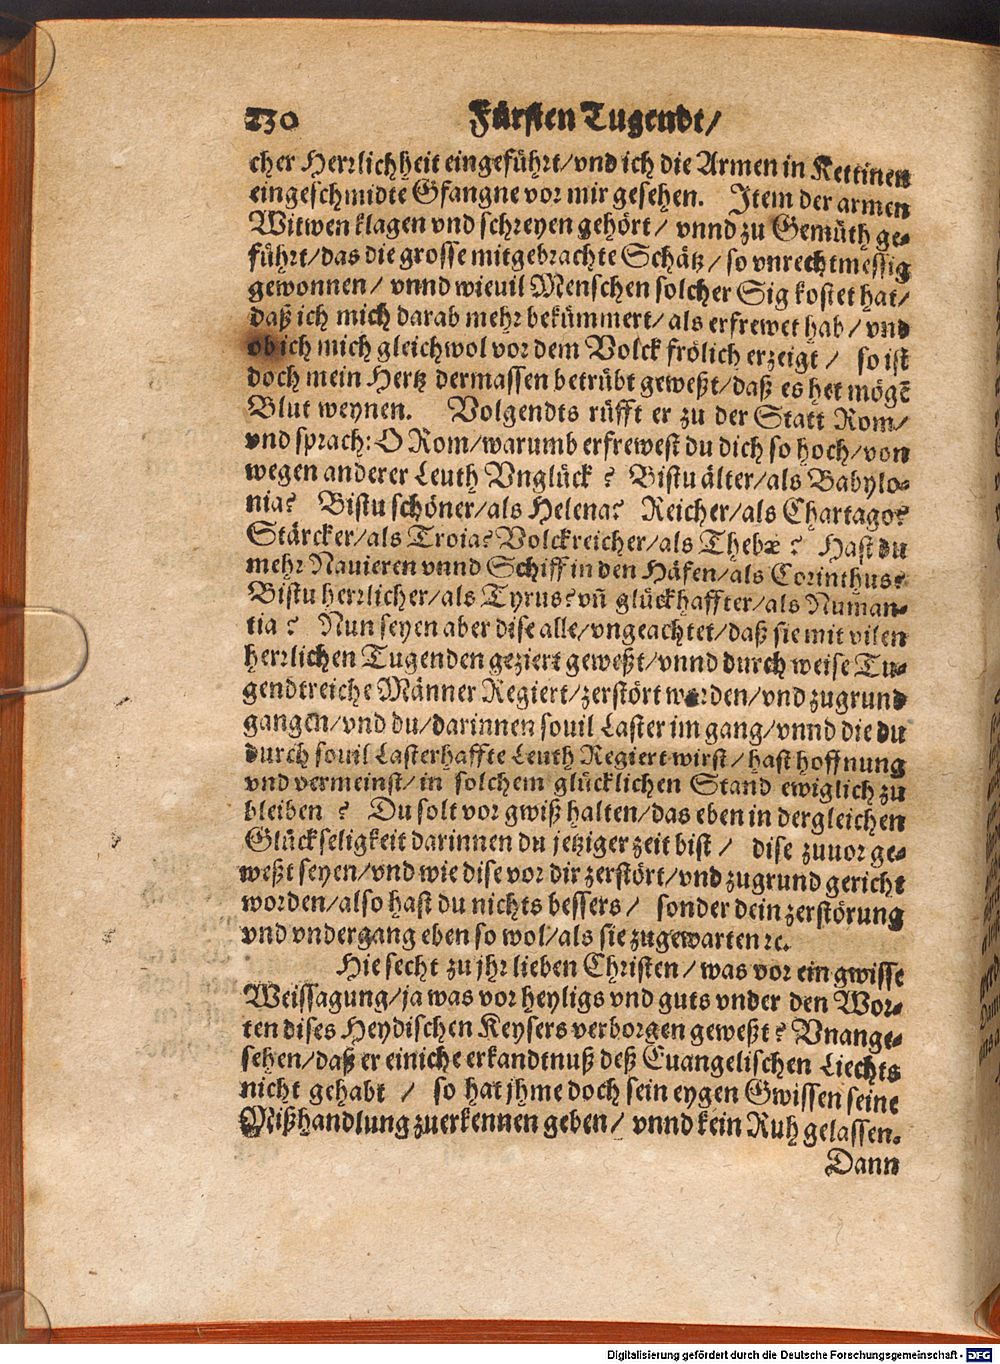 230 Fürsten Tugendt/
cher Herrlichheit eingeführt/vnd ich die Armen in Kettinen
eingeschmidte Gfangne vor mir gesehen. Item der armen
Witwen klagen vnd schreyen gehört/ vnnd zu Gemüth ge-
führt/das die grosse mitgebrachte Schätz/ so vnrechtmessig
gewonnen/ vnnd wieuil Menschen solcher Sig kostet hat/
daß ich mich darab mehr bekümmert/ als erfrewet hab/ vnd
ob ich mich gleichwol vor dem Volck frölich erzeigt/ so ist
doch mein Hertz dermassen betrübt geweßt/daß es het mögẽ
Blut weynen. Volgendts rüfft er zu der Statt Rom/
vnd sprach: O Rom/warumb erfrewest du dich so hoch/von
wegen anderer Leuth Vnglück? Bistu älter/als Babylo-
nia? Bistu schöner/als Helena? Reicher/als Chartago?
Stärcker/als Troia? Volckreicher/als Thebæ? Hast du
mehr Nauieren vnnd Schiff in den Häfen/als Corinthus?
Bistu herrlicher/als Tyrus? vñ glückhaffter/als Numan-
tia? Nun seyen aber dise alle/vngeachtet/daß sie mit vilen
herrlichen Tugenden geziert geweßt/vnnd durch weise Tu-
gendtreiche Männer Regiert/zerstört worden/vnd zugrund
gangen/vnd du/darinnen souil Laster im gang/vnnd die du
durch souil Lasterhaffte Leuth Regiert wirst/ hast hoffnung
vnd vermeinst/in solchem glücklichen Stand ewiglich zu
bleiben? Du solt vor gwiß halten/das eben in dergleichen
Glückseligkeit darinnen du jetziger zeit bist/ dise zuuor ge-
weßt seyen/vnd wie dise vor dir zerstört/vnd zugrund gericht
worden/also hast du nichts bessers/ sonder dein zerstörung
vnd vndergang eben so wol/als sie zugewarten ꝛc.
Hie secht zu jhr lieben Christen/ was vor ein gwisse
Weissagung/ja was vor heyligs vnd guts vnder den Wor-
ten dises Heydischen Keysers verborgen geweßt? Vnange-
sehen/daß er einiche erkandtnuß deß Euangelischen Liechts
nicht gehabt/ so hat jhme doch sein eygen Gwissen seine
Mißhandlung zuerkennen geben/ vnnd kein Ruh gelassen.
Dann
Digitalisierung gefördert durch die Deutsche Forschungsgemeinschaft - DFG